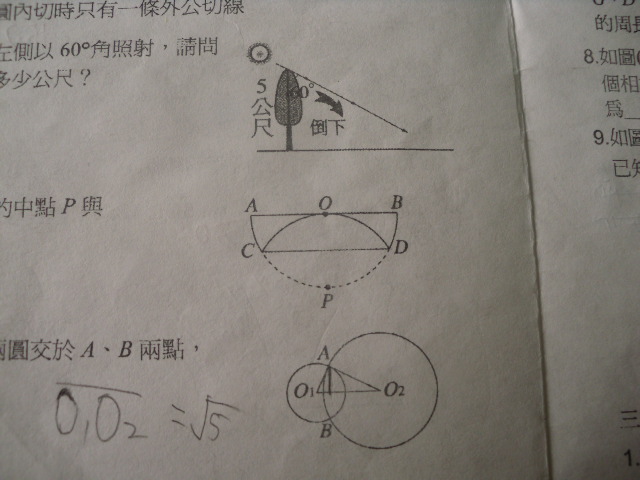 圓內切時只有一條外公切線
左側以60°角照射，請問
多少公尺？
5公尺
60°
倒下
的中點P與
A O B
C D
P
兩圓交於A、B兩點，
O₁O₂ = √5
A
O₁ O₂
B
的周長
8.如圖
個相
為
9.如圖
已知
三
1.